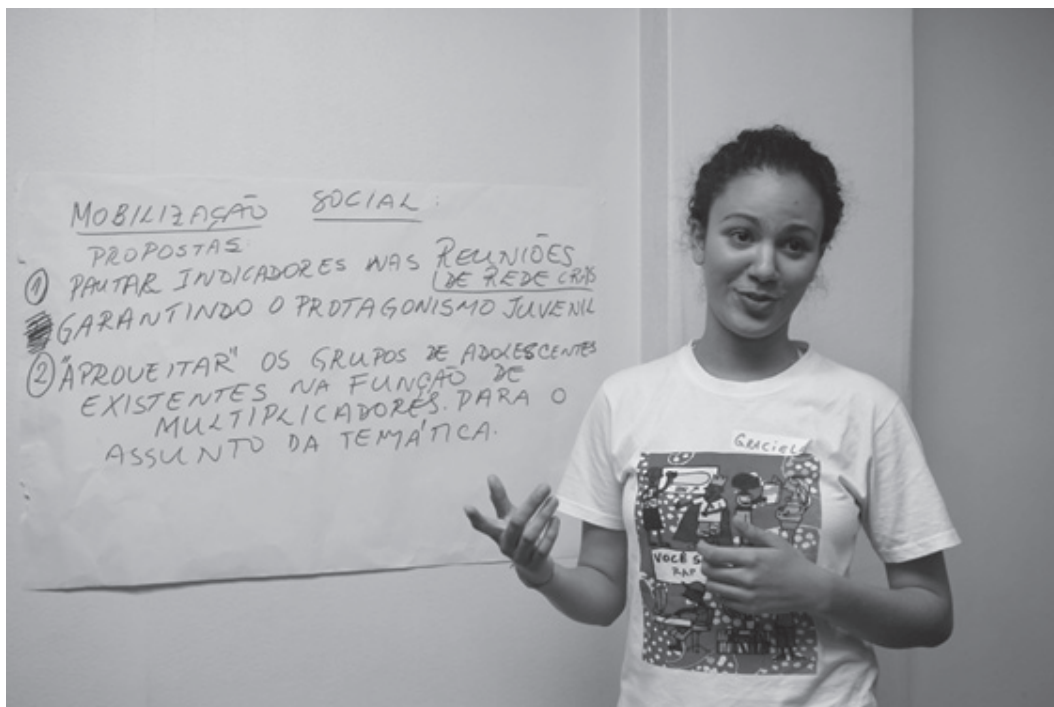 MOBILIZAÇÃO SOCIAL:
PROPOSTAS:
① PAUTAR INDICADORES NAS REUNIÕES
DE REDE CRAS
GARANTINDO O PROTAGONISMO JUVENIL
② "APROVEITAR" OS GRUPOS DE ADOLESCENTES
EXISTENTES NA FUNÇÃO DE
MULTIPLICADORES. PARA O
ASSUNTO DA TEMÁTICA.
GRACIEL
VOCÊ S
RAP